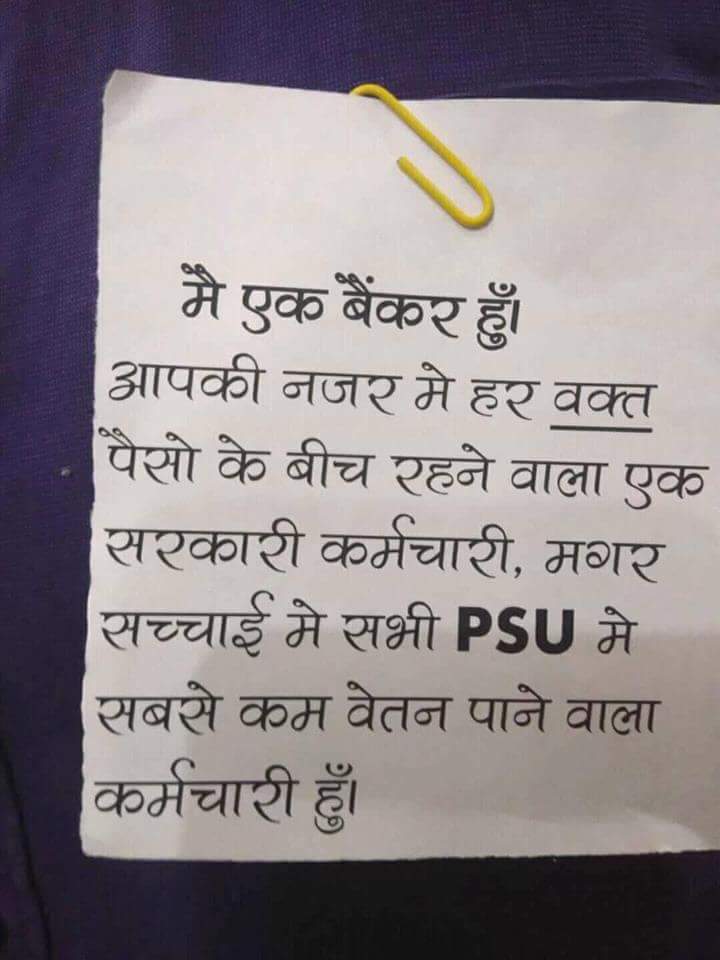 मै एक बैंकर हुँ।
आपकी नजर मे हर वक्त
पैसो के बीच रहने वाला एक
सरकारी कर्मचारी, मगर
सच्चाई मे सभी PSU मे
सबसे कम वेतन पाने वाला
कर्मचारी हुँ।